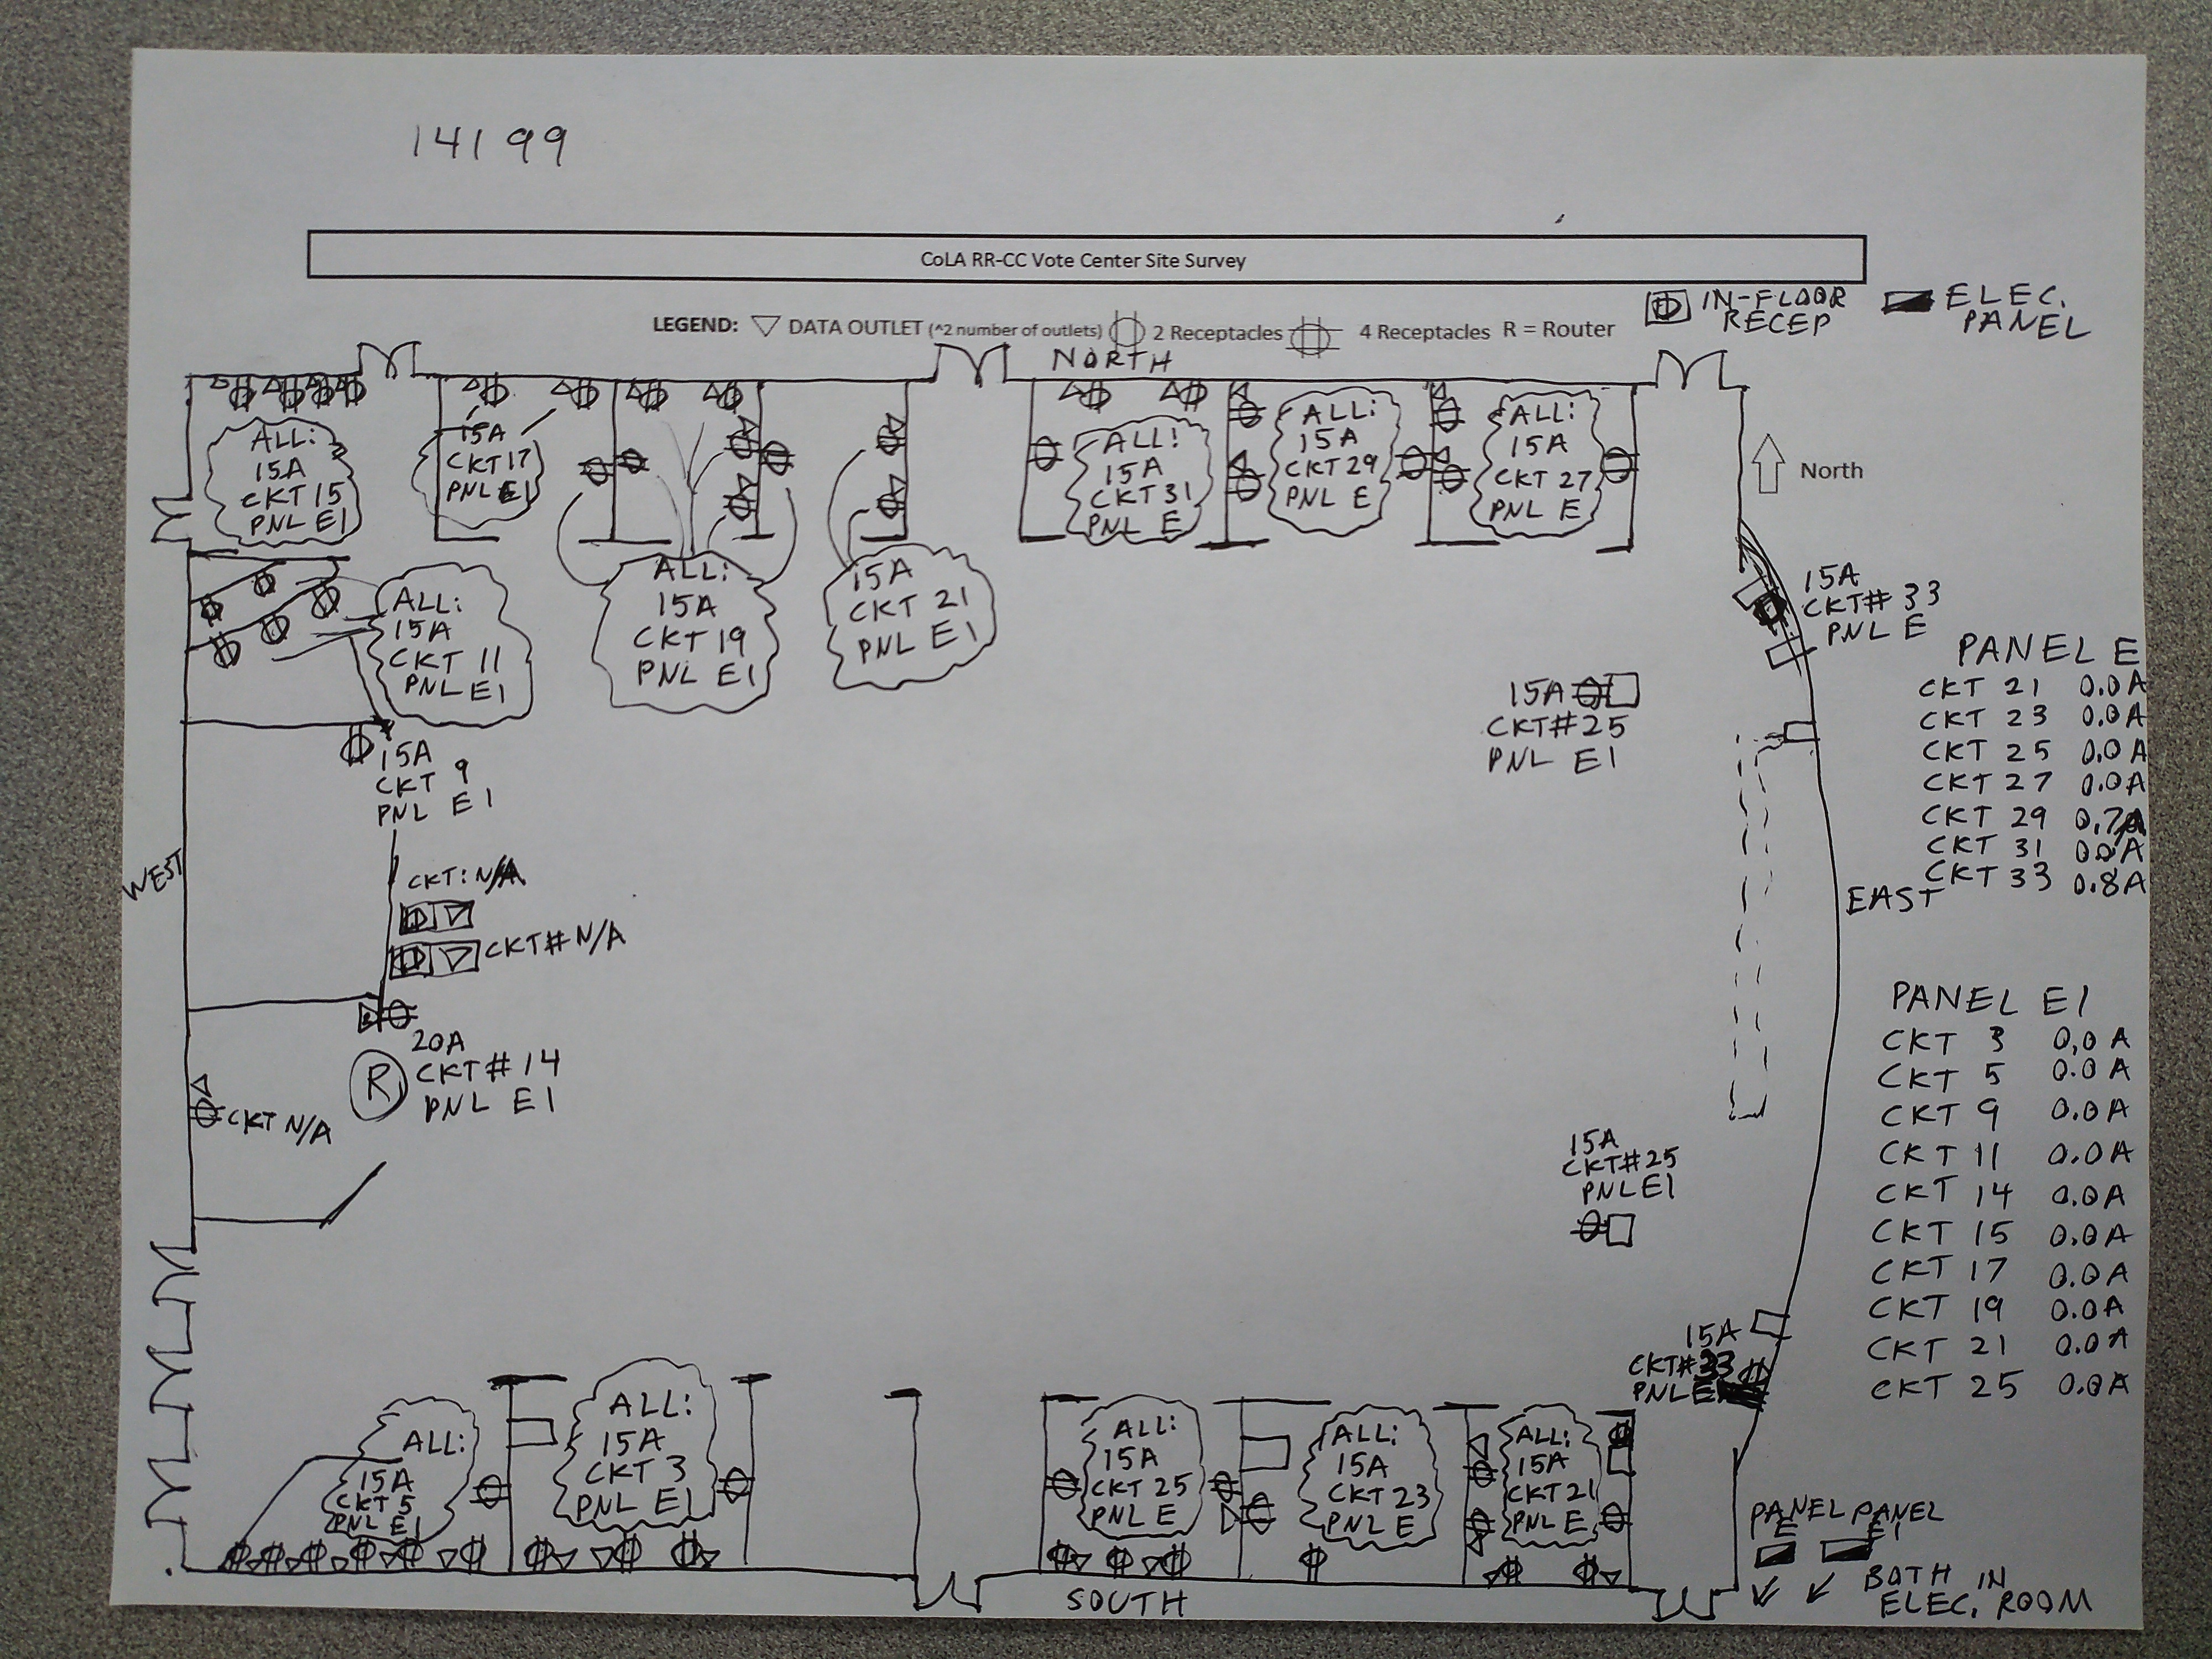 14199
CoLA RR-CC Vote Center Site Survey
LEGEND: DATA OUTLET (^2 number of outlets) 2 Receptacles 4 Receptacles R = Router
IN-FLOOR
RECEP
ELEC.
PANEL
NORTH
ALL:
15A
CKT 15
PNL E1
15A
CKT 17
PNL E1
ALL!
15A
CKT 31
PNL E
ALL:
15A
CKT 29
PNL E
ALL:
15A
CKT 27
PNL E
North
ALL:
15A
CKT 11
PNL E1
ALL:
15A
CKT 19
PNL E1
15A
CKT 21
PNL E1
15A
CKT# 33
PNL E
15A
CKT#25
PNL E1
PANEL E
CKT 21 0.0A
CKT 23 0.0A
CKT 25 0.0A
CKT 27 0.0A
CKT 29 0.7A
CKT 31 0.0A
CKT 33 0.8A
15A
CKT 9
PNL E1
WEST
CKT: N/A
CKT# N/A
EAST
20A
CKT# 14
PNL E1
R
CKT N/A
15A
CKT#25
PNL E1
PANEL E1
CKT 3 0.0A
CKT 5 0.0A
CKT 9 0.0A
CKT 11 0.0A
CKT 14 0.0A
CKT 15 0.0A
CKT 17 0.0A
CKT 19 0.0A
CKT 21 0.0A
CKT 25 0.0A
15A
CKT#33
PNL E
ALL:
15A
CKT 5
PNL E1
ALL:
15A
CKT 3
PNL E1
ALL:
15A
CKT 25
PNL E
ALL:
15A
CKT 23
PNL E
ALL:
15A
CKT 21
PNL E
PANEL
E
PANEL
E1
BOTH IN
ELEC. ROOM
SOUTH